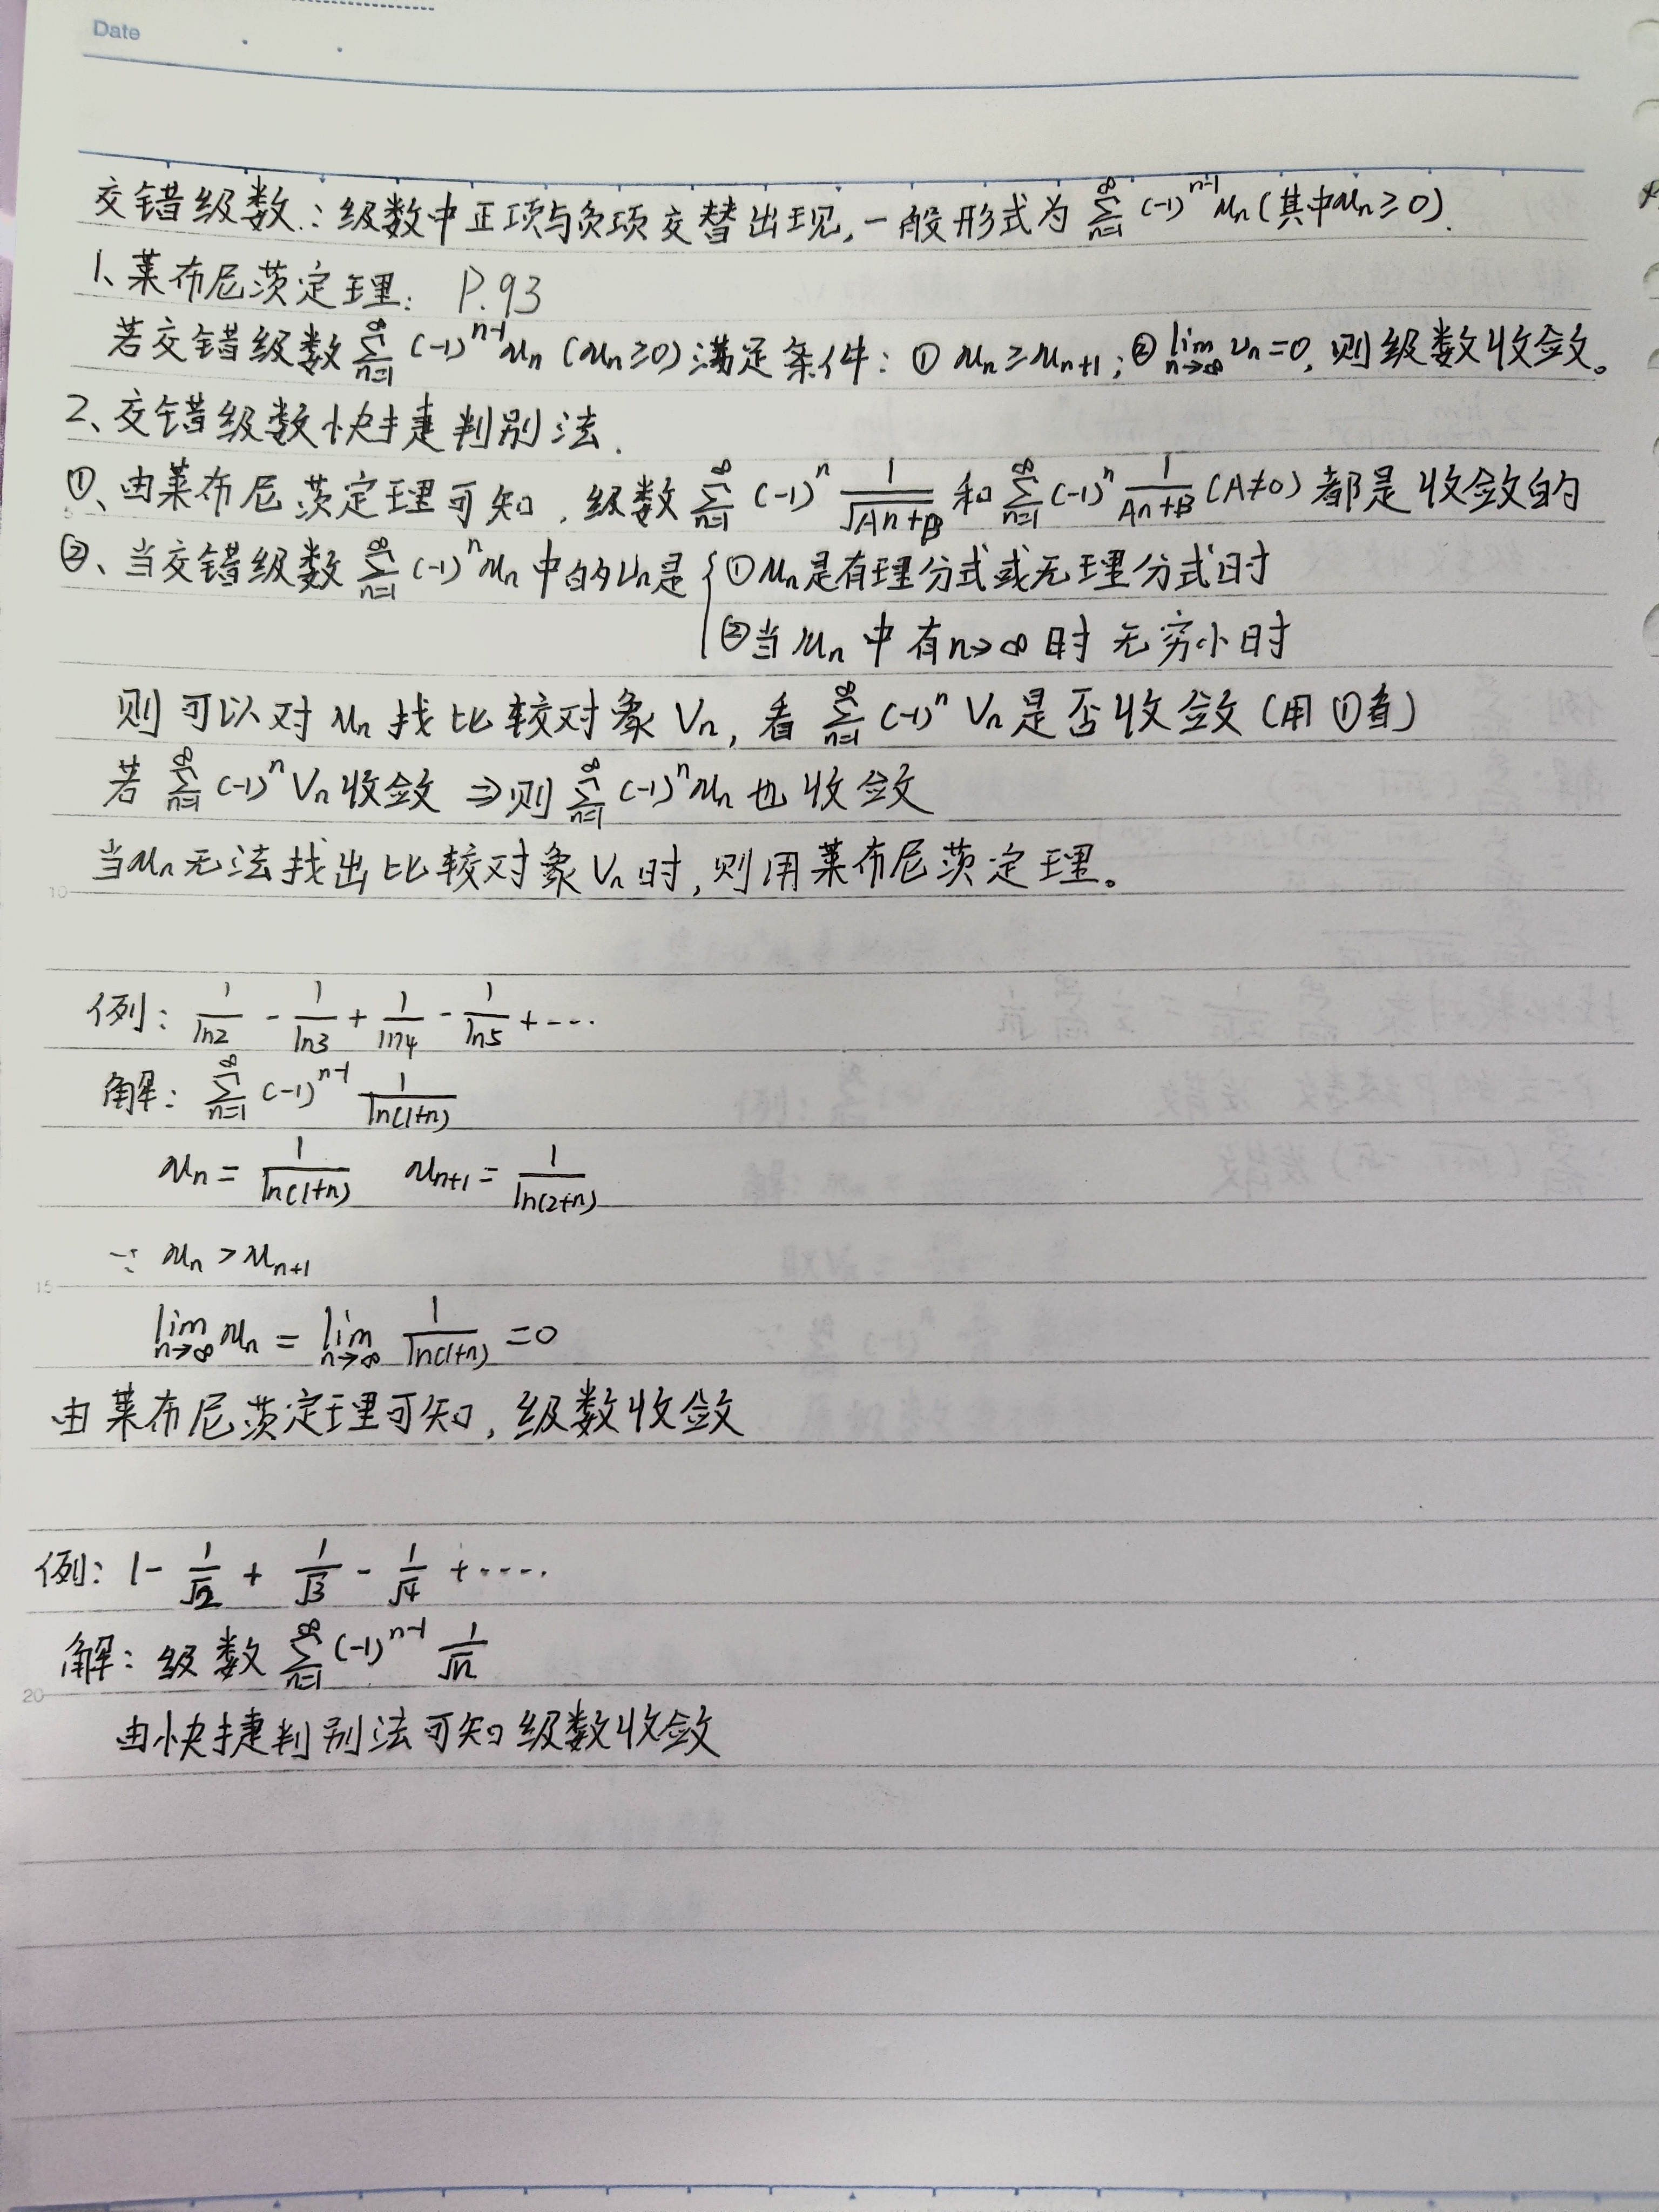 Date
交错级数：级数中正项与负项交替出现,一般形式为 ∑_{n=1}^{∞} (-1)^{n-1} u_n (其中u_n≥0).
1、莱布尼茨定理： P.93
若交错级数 ∑_{n=1}^{∞} (-1)^{n-1} u_n (u_n≥0) 满足条件：① u_n≥u_{n+1}; ② lim_{n→∞} u_n=0, 则级数收敛。
2、交错级数快捷判别法.
①、由莱布尼茨定理可知，级数 ∑_{n=1}^{∞} (-1)^n 1/√(An+B) 和 ∑_{n=1}^{∞} (-1)^n 1/(An+B) (A≠0) 都是收敛的
②、当交错级数 ∑_{n=1}^{∞} (-1)^n u_n 中的u_n是 { ①u_n是有理分式或无理分式时
②当 u_n 中有n→∞时 无穷小时
则可以对 u_n 找比较对象 V_n, 看 ∑_{n=1}^{∞} (-1)^n V_n 是否收敛 (用①看)
若 ∑_{n=1}^{∞} (-1)^n V_n 收敛 ⇒则 ∑_{n=1}^{∞} (-1)^n u_n 也收敛
当u_n无法找出比较对象 V_n 时, 则用莱布尼茨定理。
10
例： 1/ln2 - 1/ln3 + 1/ln4 - 1/ln5 + ....
解： ∑_{n=1}^{∞} (-1)^{n-1} 1/ln(1+n)
u_n = 1/ln(1+n) u_{n+1} = 1/ln(2+n)
∵ u_n > u_{n+1}
15
lim_{n→∞} u_n = lim_{n→∞} 1/ln(1+n) = 0
由莱布尼茨定理可知, 级数收敛
例： 1 - 1/√2 + 1/√3 - 1/√4 + .....
解： 级数 ∑_{n=1}^{∞} (-1)^{n-1} 1/√n
20
由快捷判别法可知级数收敛